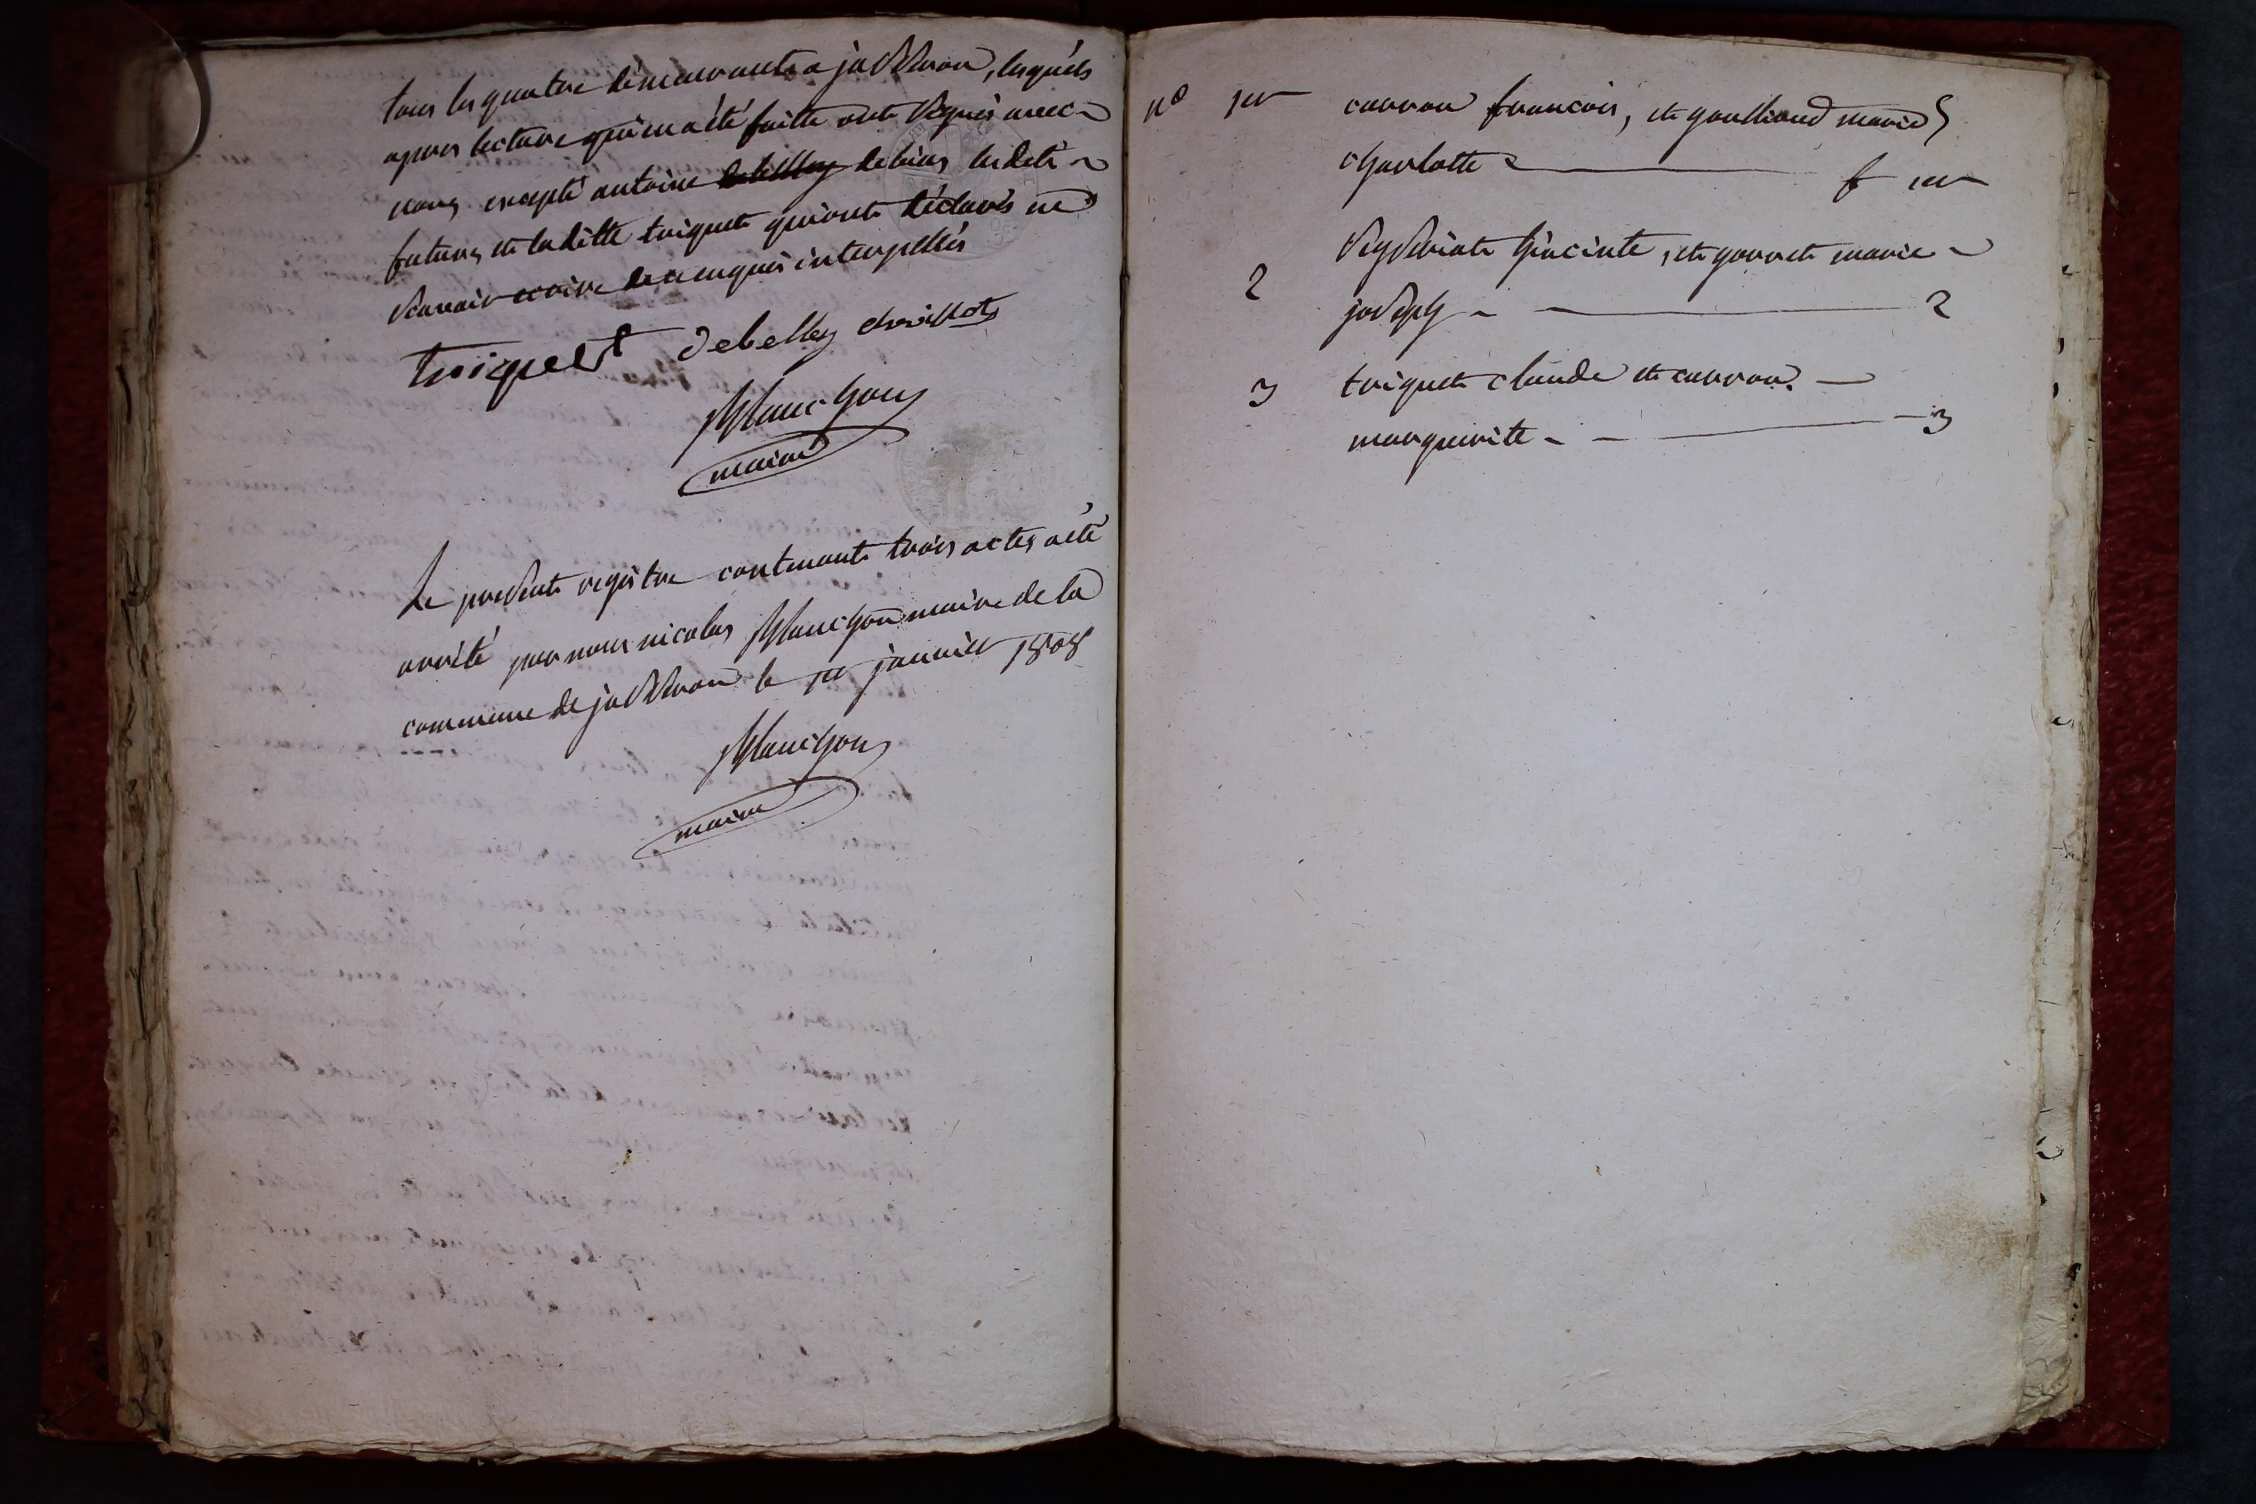 tous les quatre demeurants a jasseron, lesquels
apres lecture qui en a été faitte ont signés avec
nous excepté antoine debelley debias lesdits
futurs et laditte triquet qui ont déclarés ne
scavoir ecrire de ce enquis interpellés
troiquet debelley chvillot
Planchon
maire
Le present registre contenant trois actes a été
arrêté par nous nicolas Planchon maire de la
commune de jasseron le 1er janvier 1808
Planchon
maire
no 1er carron francois, et goulliand marie
charlotte f 1er
2 hiacinte, et gorret marie
joseph 2
3 triquet claude et carron
marguerite 3